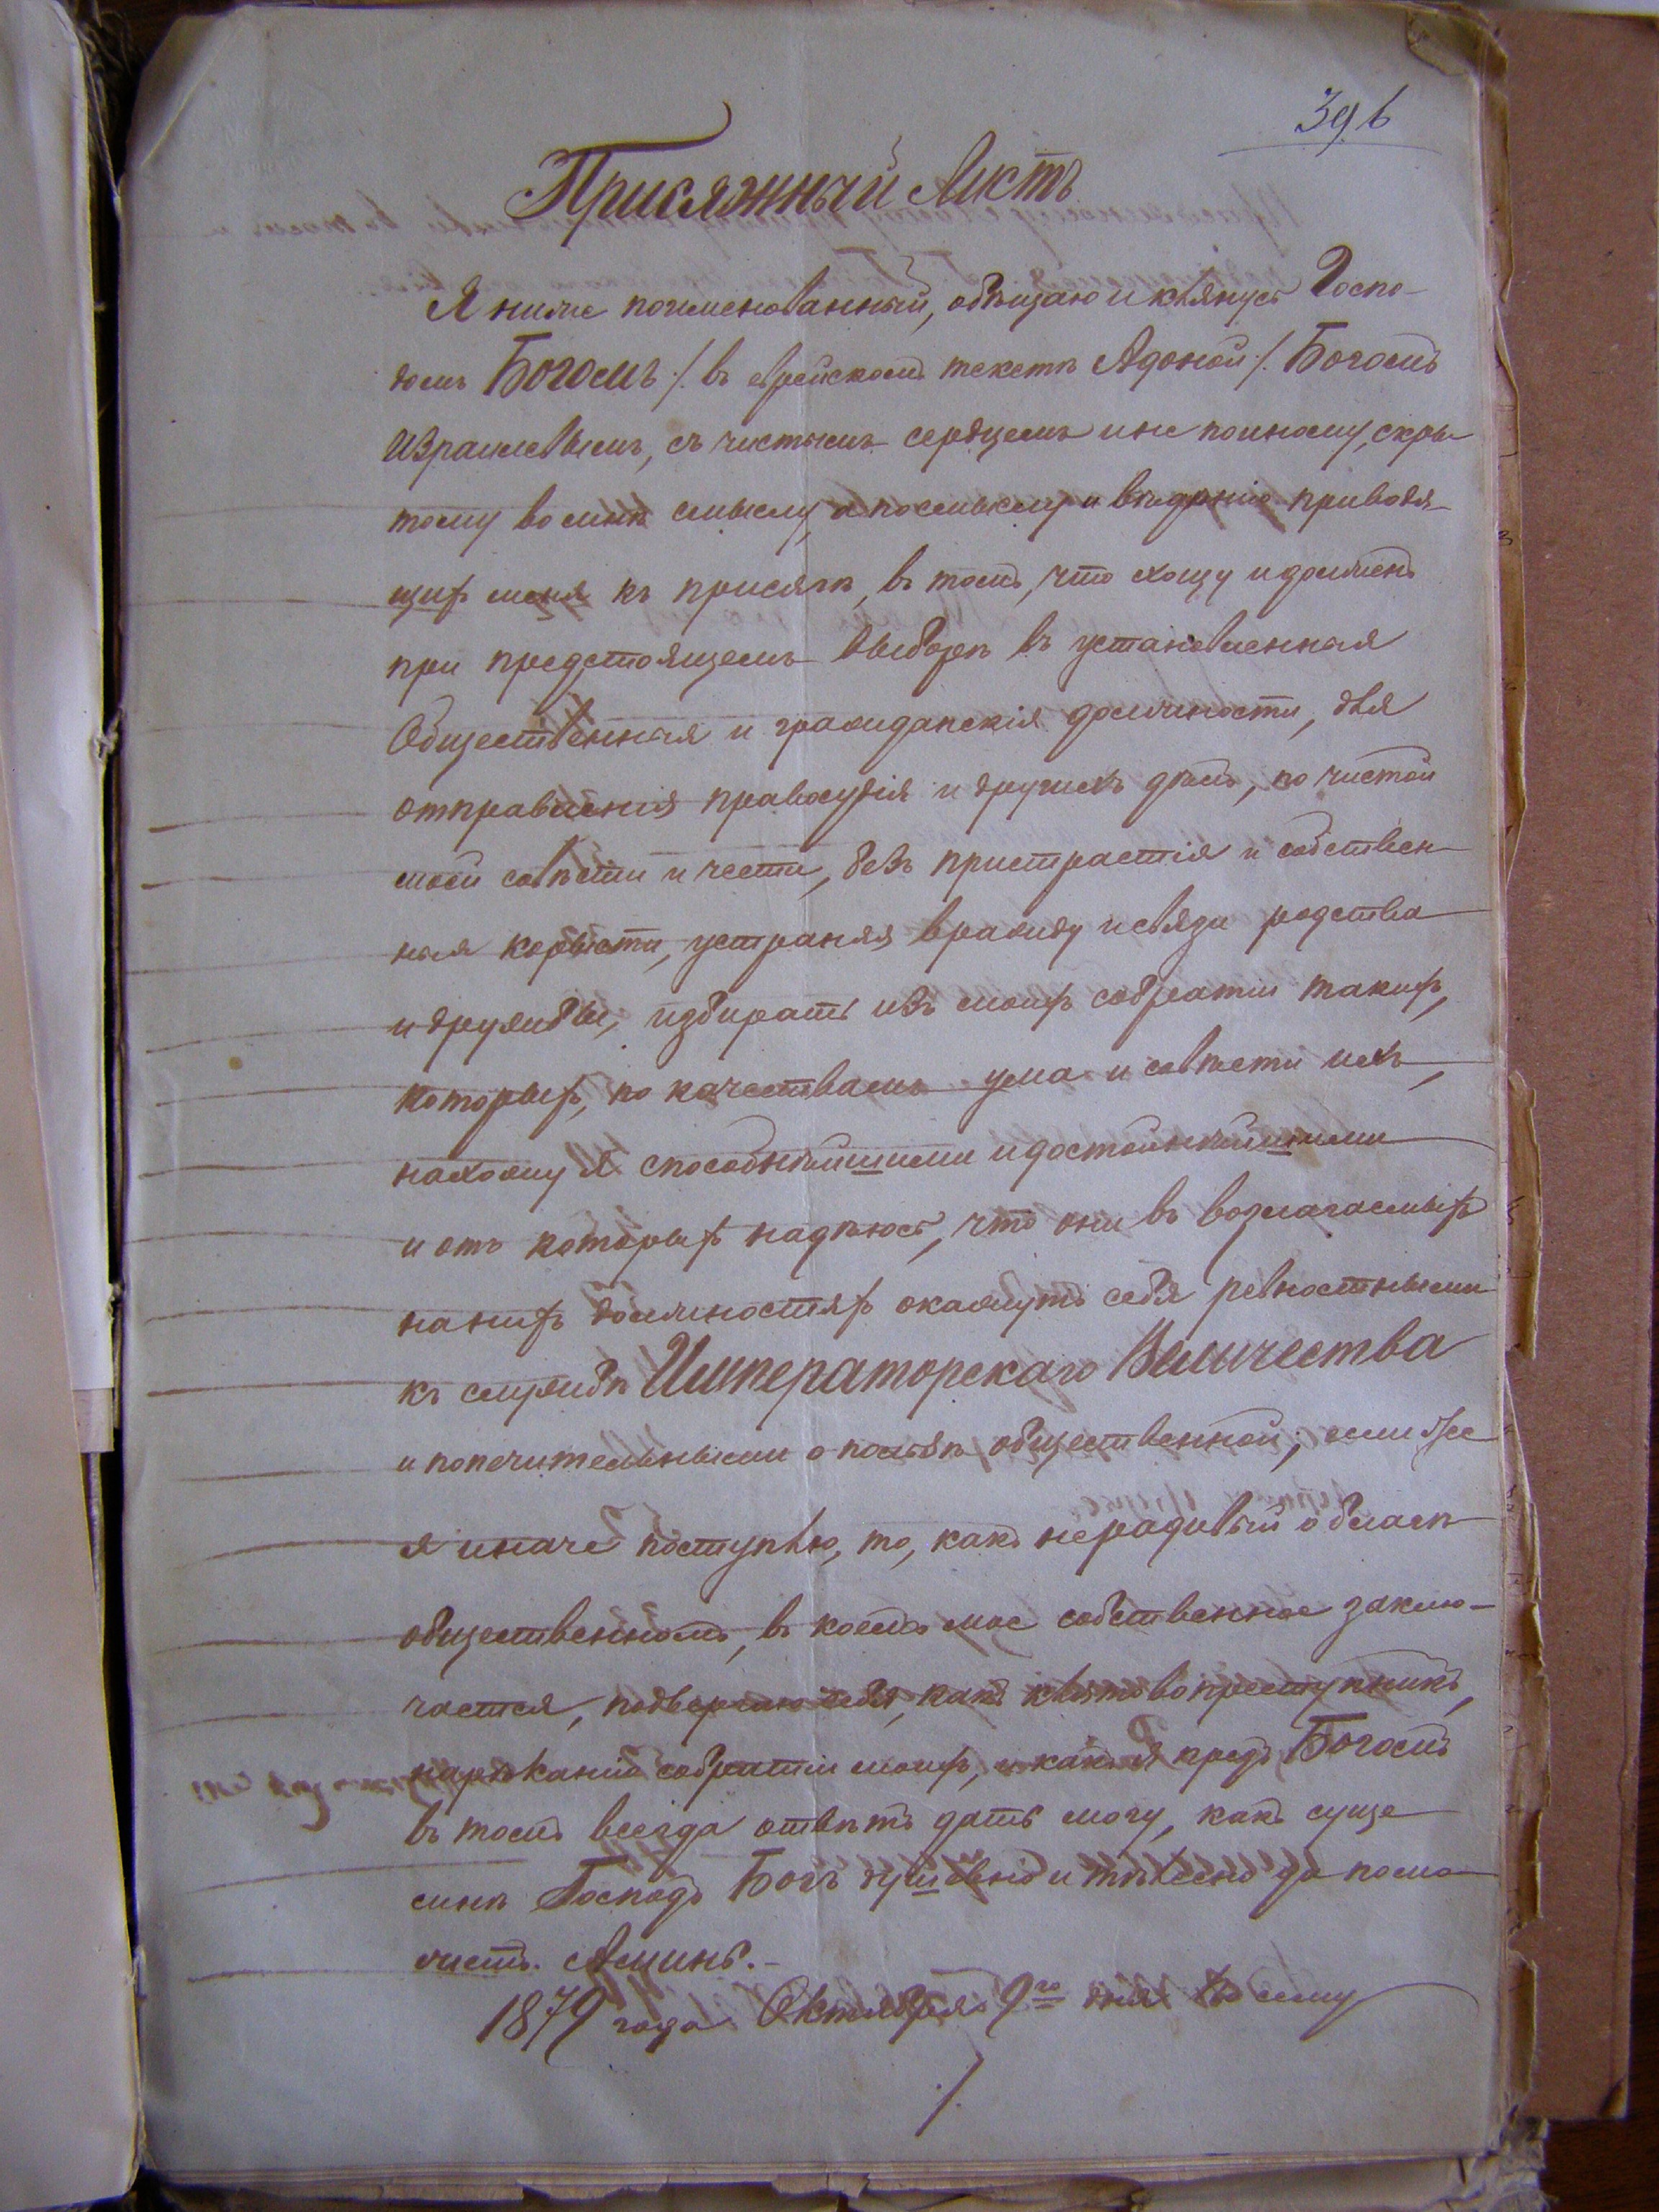 396
Присяжный Листъ
Я ниже поименованный, обѣщаю и клянусь Госпо-
домъ Богомъ /. въ еврейскомъ текстѣ Адоной /. Богомъ
Израилевымъ, съ чистымъ сердцемъ и не по иному, скры-
тому во мнѣ смыслу, а по смыслу и вѣдѣнію приводя-
щихъ меня къ присягѣ, въ томъ, что хощу и долженъ
при предстоящемъ выборѣ въ установленныя
Общественныя и гражданскія должности, для
отправленія правосудія и другихъ дѣлъ, по чистой
моей совѣсти и чести, безъ пристрастія и собствен-
ныя корысти, устраняя вражду и связи родства
и дружбы, избирать изъ моихъ собратій такихъ,
которыхъ, по качествамъ ума и совѣсти ихъ,
нахожу я способнѣйшими и достойнѣйшими
и отъ которыхъ надѣюсь, что они въ возлагаемыхъ
на нихъ должностяхъ окажутъ себя ревностными
къ службѣ Императорскаго Величества
и попечительными о пользѣ общественной; если же
я иначе поступлю, то, какъ нерадивый о благѣ
общественномъ, въ коемъ мое собственное заклю-
чается, подвергаю себя, какъ клятвопреступникъ,
нареканію собратій моихъ, и какъ я предъ Богомъ
въ томъ всегда отвѣтъ дать могу, какъ суще
мнѣ Господь Богъ душевно и тѣлесно да помо-
жетъ. Аминь.-
1879 года Октября 9го дня къ сему
./.